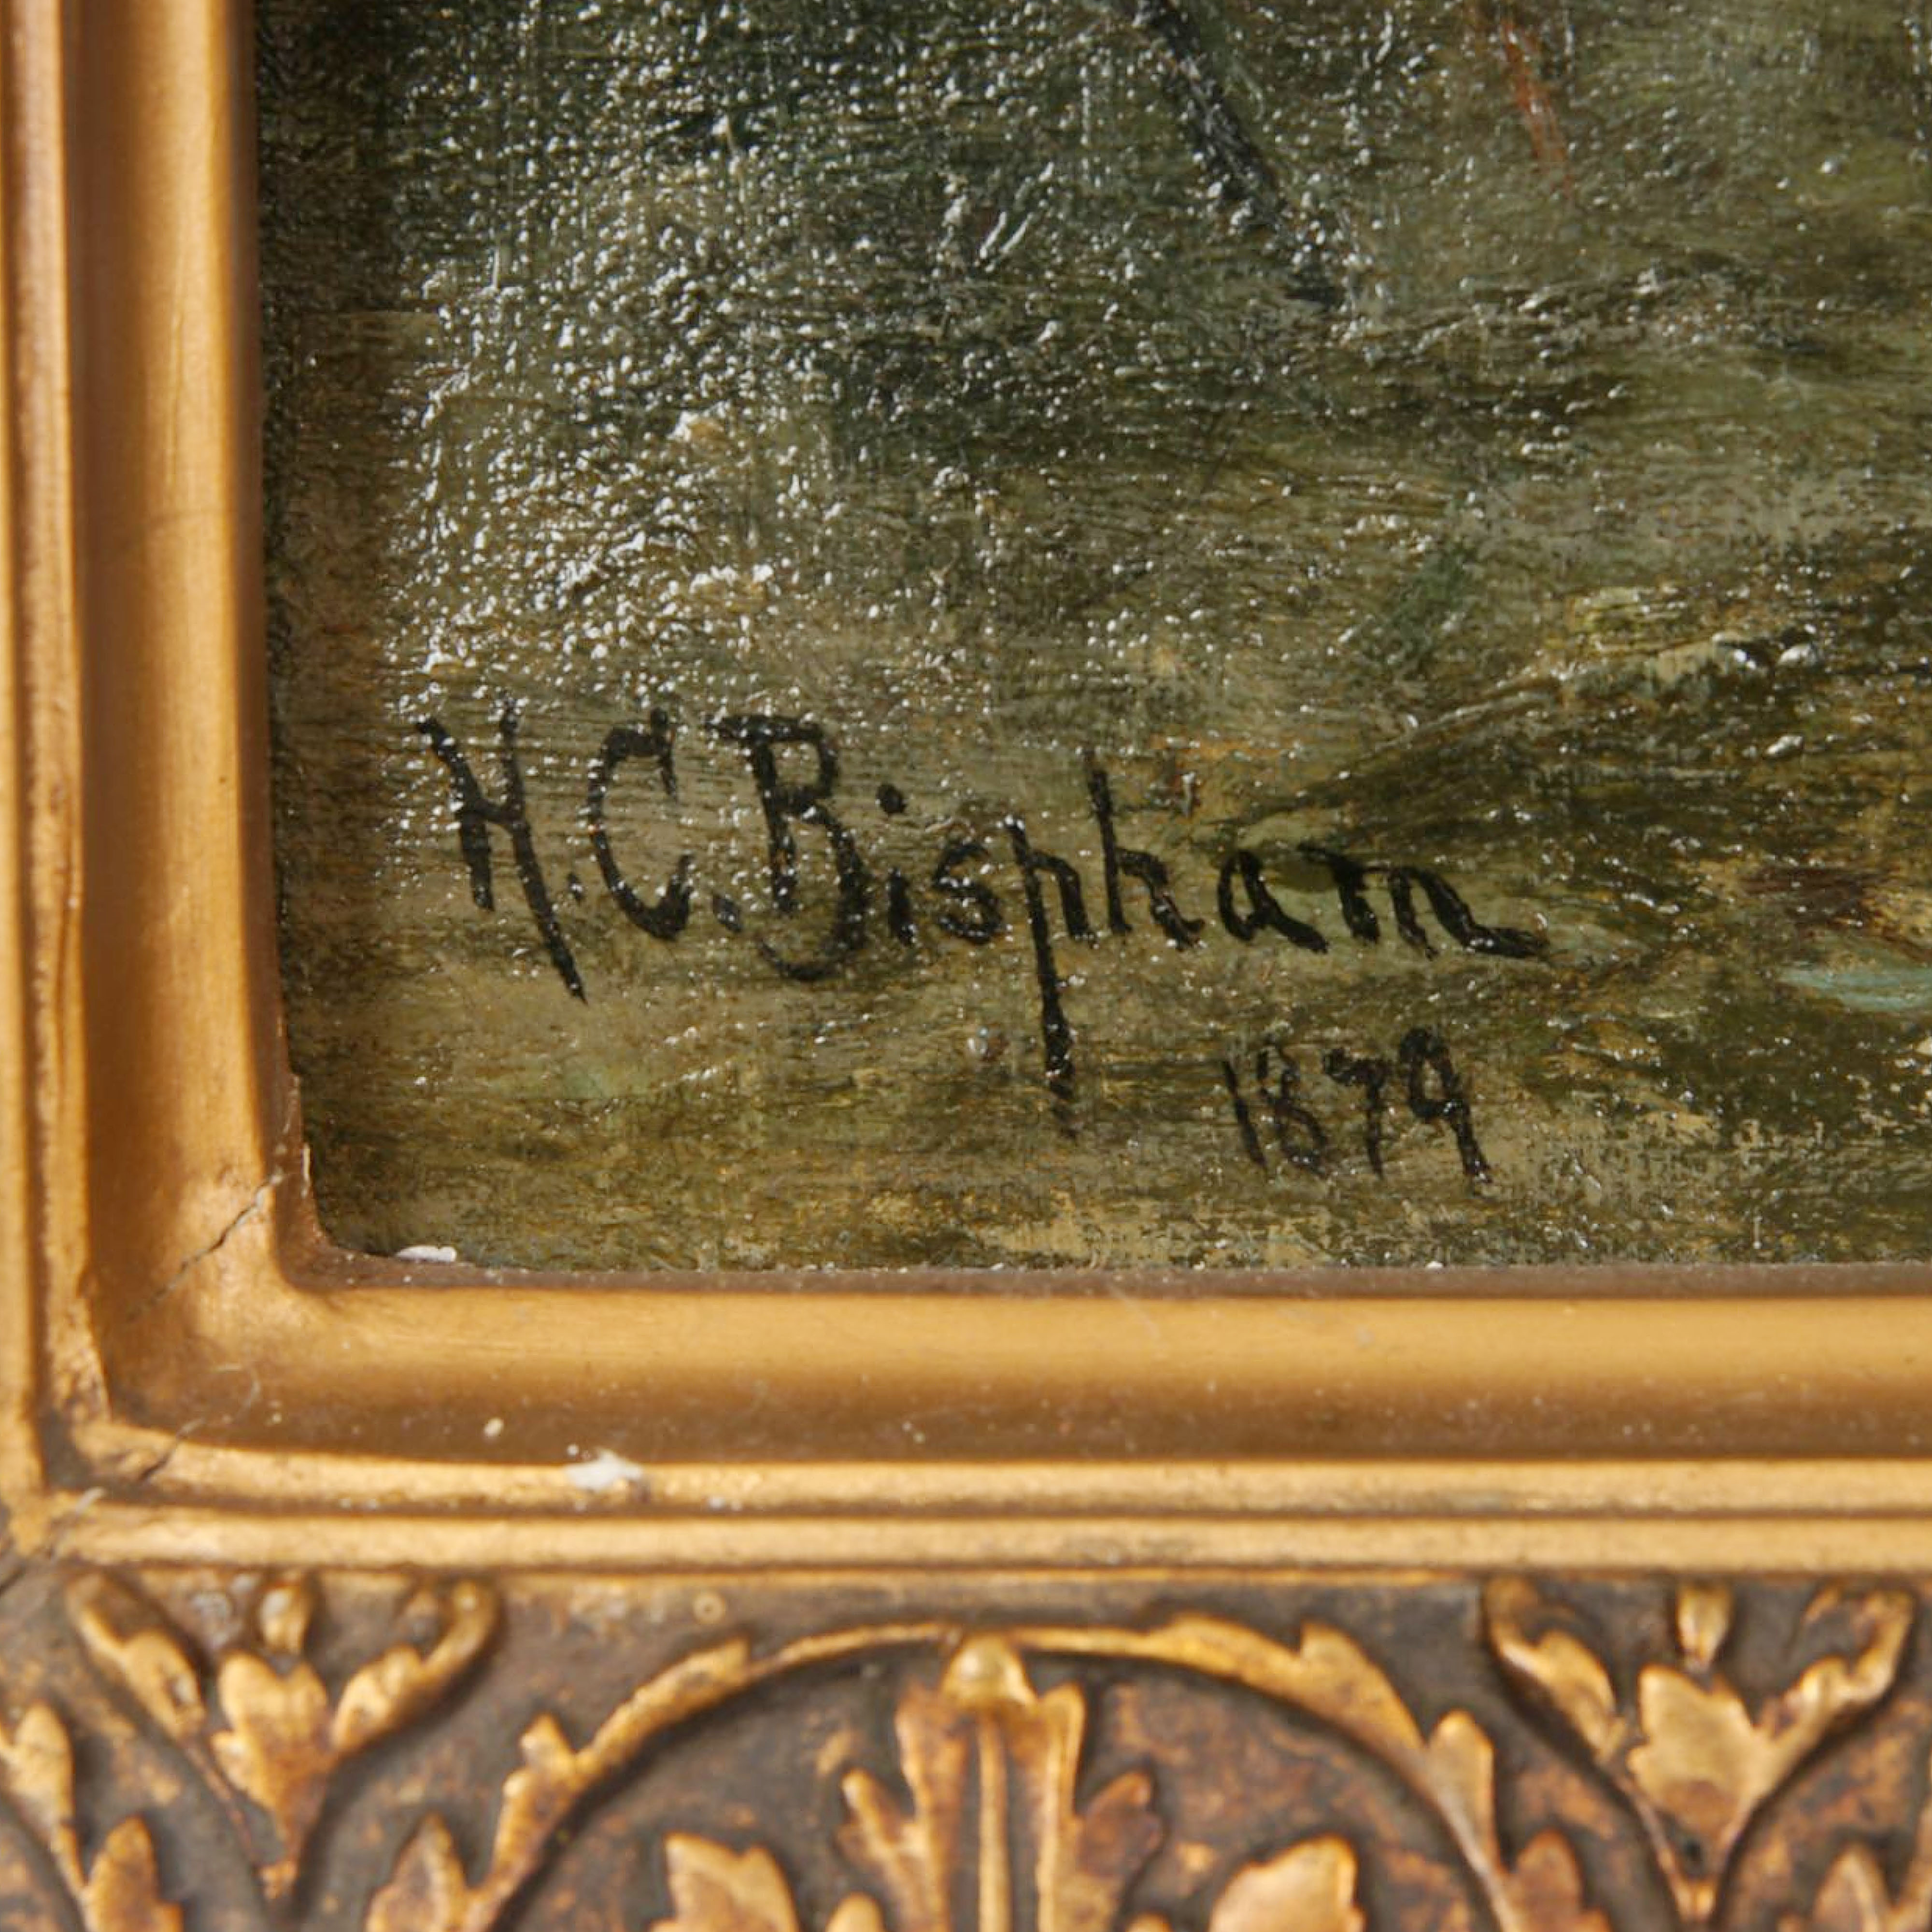 H.C.Bispham
1879